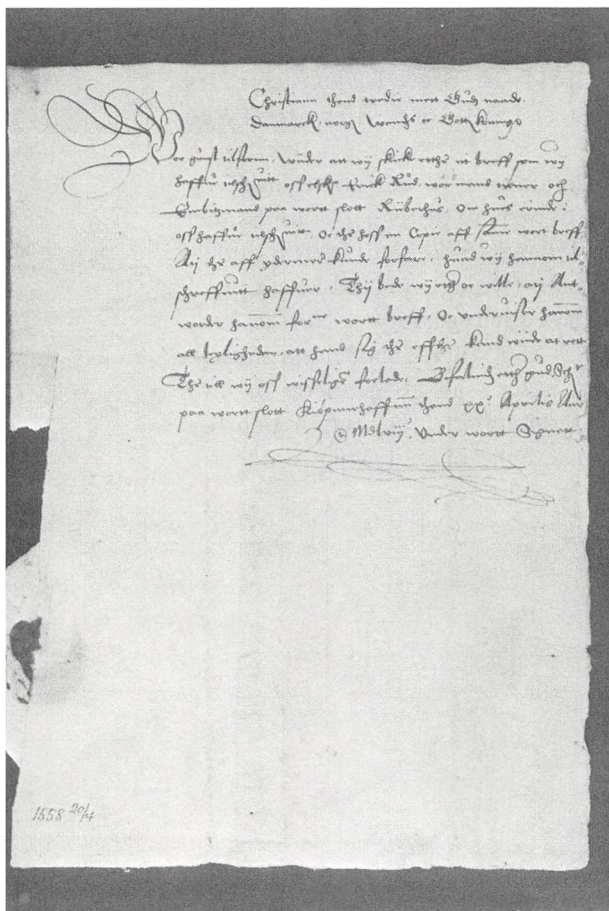 Christiann thend tredie mett Gudz naade
Danmarck, norgs Wends oc Gotts koning
Vor gunst tilforn. Wider att wy skicke ether it breff som wy
haffue oss elske Erick Rud, wor mand thiener och
Embitzmand paa wortt slott Riiberhus. Om hues
oss haffuer Oc ther hoss en Copie aff samme wort breff
Atj the aff ydermere kunde forfare, huad wy hannom til-
schreffuitt haffuer. Thij bede wy ether oc wille, atj Ant-
worder hannom wortt breff. Oc underuiser hannom
all leyligheden, att hand sig ther effther kand wide at rette
Ther till wy oss visselige forlade. Befalendis ether gud.
paa wortt slott Kiøpnnehaffnn thend xx Aprilis Aar
Mdlviij. Under wortt Signett
1558 20/4